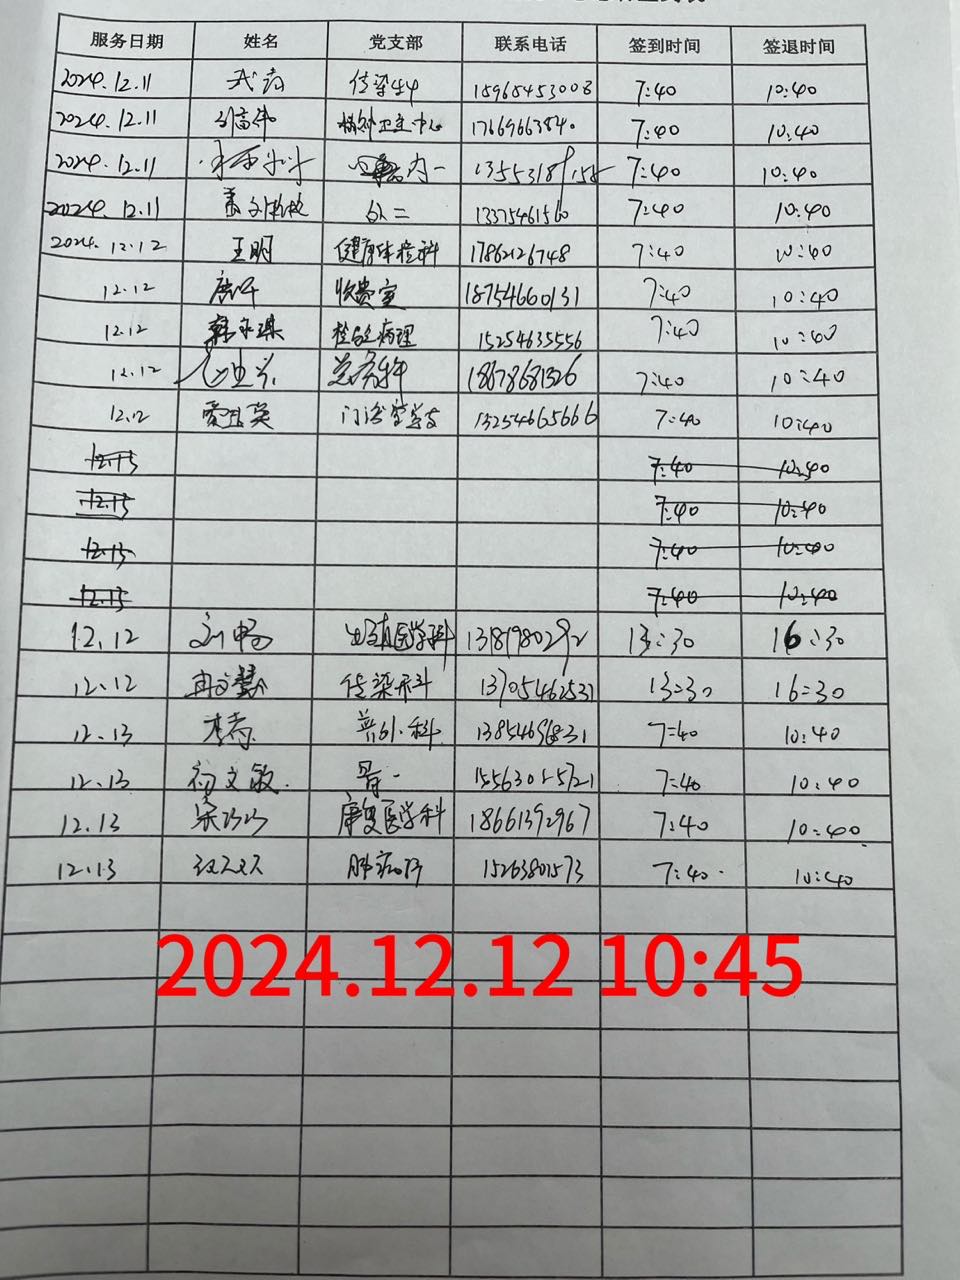 服务日期 姓名 党支部 联系电话 签到时间 签退时间
2024.12.11 武 传染 15965453008 7:40 10:40
2024.12.11 精神卫生中心 17669663840 7:40 10:40
2024.12.11 内一 7:40 10:40
2024.12.11 外二 13375461560 7:40 10:40
2024.12.12 王明 健康体检科 17862126748 7:40 10:40
12.12 收费室 18754660131 7:40 10:40
12.12 检验病理 15254635556 7:40 10:40
12.12 总务科 18678681326 7:40 10:40
12.12 门诊 13254665666 7:40 10:40
12.13 7:40 10:40
12.13 7:40 10:40
12.13 7:40 10:40
12.13 7:40 10:40
12.12 刘畅 医学科 13:30 16:30
12.12 冉文慧 传染病科 13705462531 13:30 16:30
12.13 李 普外科 7:40 10:40
12.13 初文敏 骨一 7:40 10:40
12.13 梁巧巧 康复医学科 18661392967 7:40 10:40
12.13 肺病科 15263801573 7:40 10:40
2024.12.12 10:45